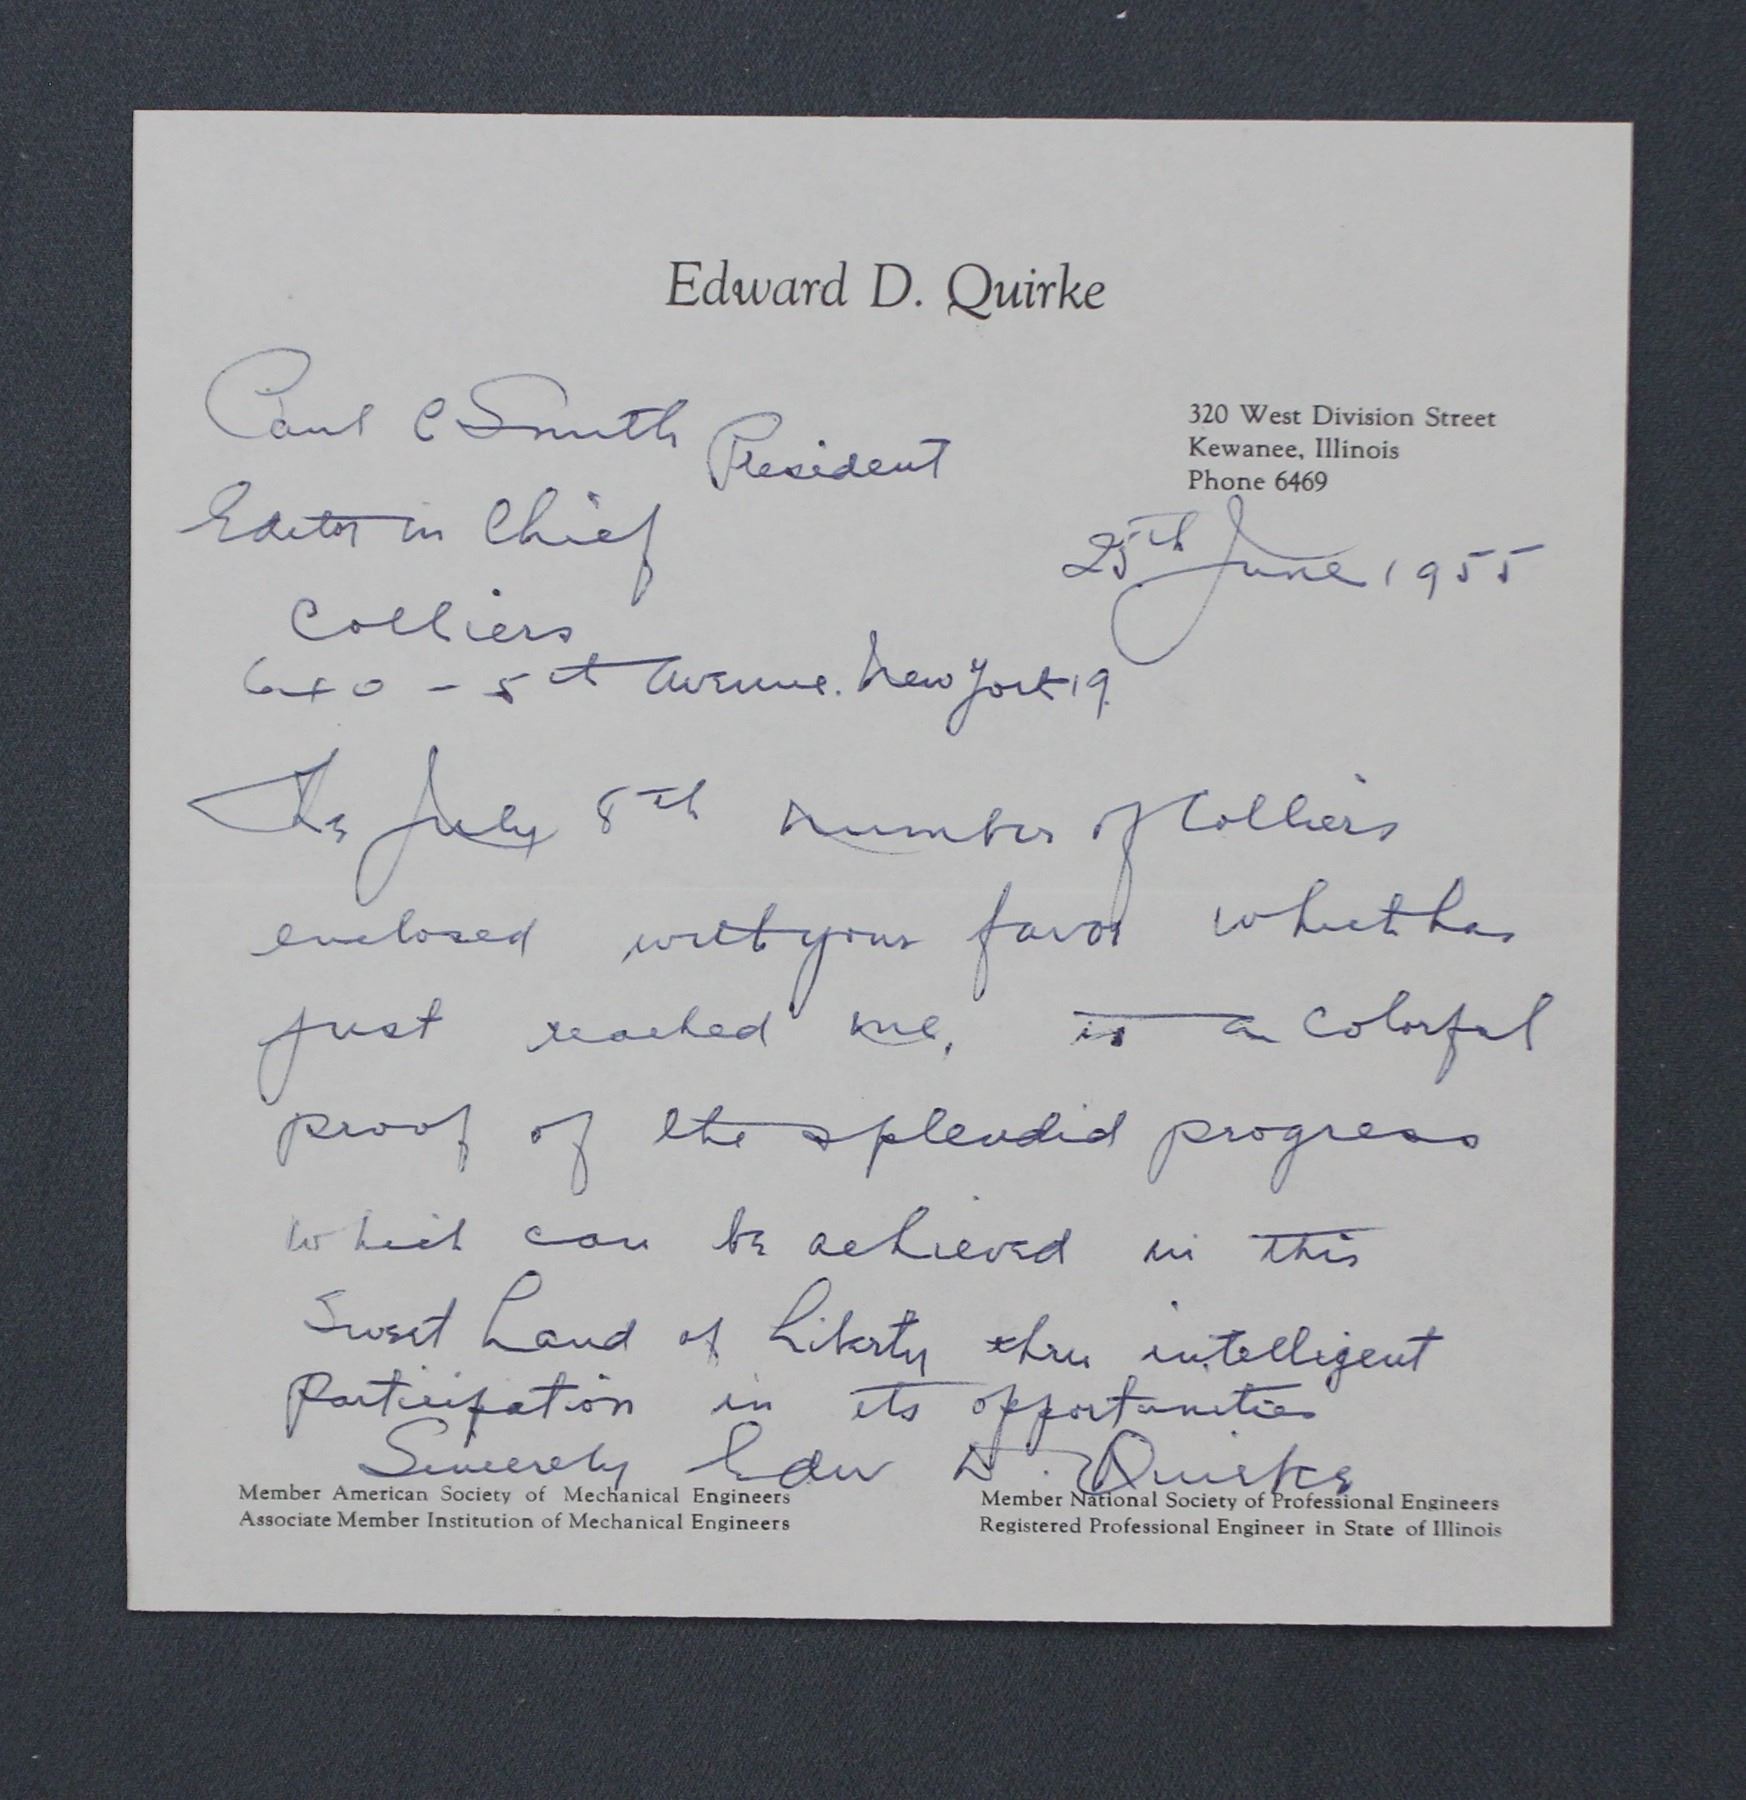 Edward D. Quirke
320 West Division Street
Kewanee, Illinois
Phone 6469
Paul C Smith President
Editor in Chief
25th June 1955
Colliers
640 - 5th Avenue. New York 19.
The July 8th number of Colliers
enclosed with your favor which has
just reached me, is a colorful
proof of the splendid progress
which can be achieved in this
Sweet Land of Liberty thru intelligent
Participation in its opportunities
Sincerely Edw D. Quirke
Member American Society of Mechanical Engineers
Associate Member Institution of Mechanical Engineers
Member National Society of Professional Engineers
Registered Professional Engineer in State of Illinois